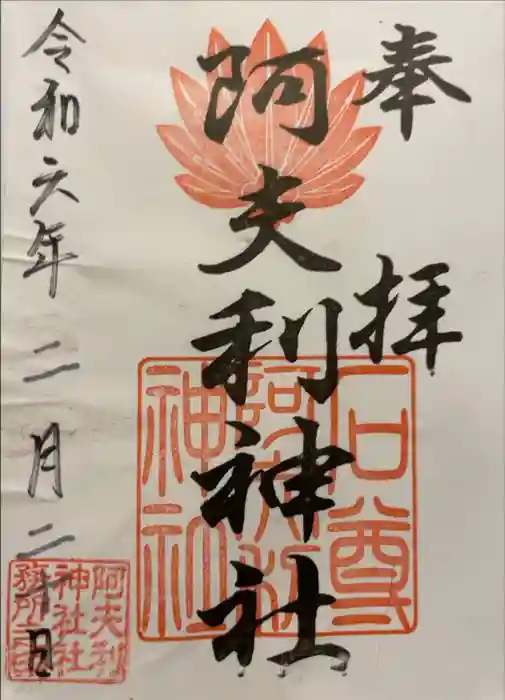 奉拝
阿夫利神社
令和六年二月二十日
石尊
阿夫利
神社
阿夫利
神社社
務所之印